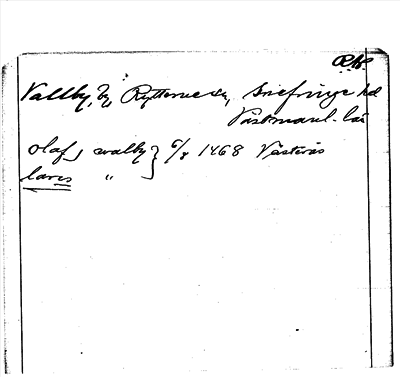 RAP.
Vallby, by, Rytterne sn, Snefringe hd
Västmanl. län
Olaf j walby } 6/8 1468 Västerås
laris "